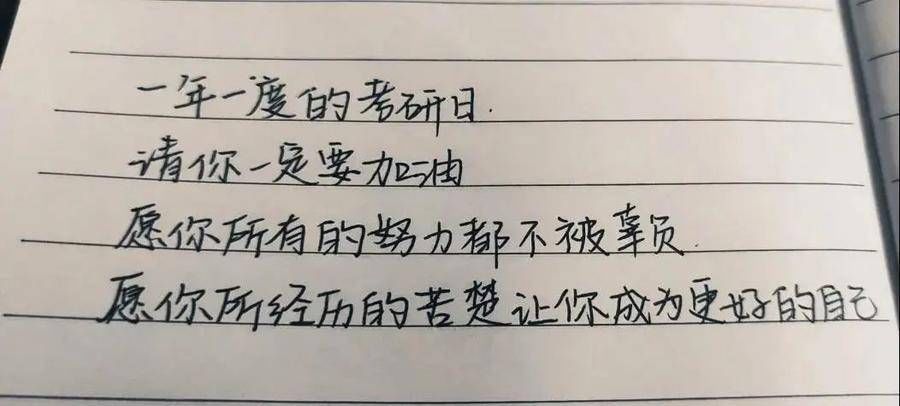 一年一度的考研日.
请你一定要加油
愿你所有的努力都不被辜负.
愿你所经历的苦楚让你成为更好的自己